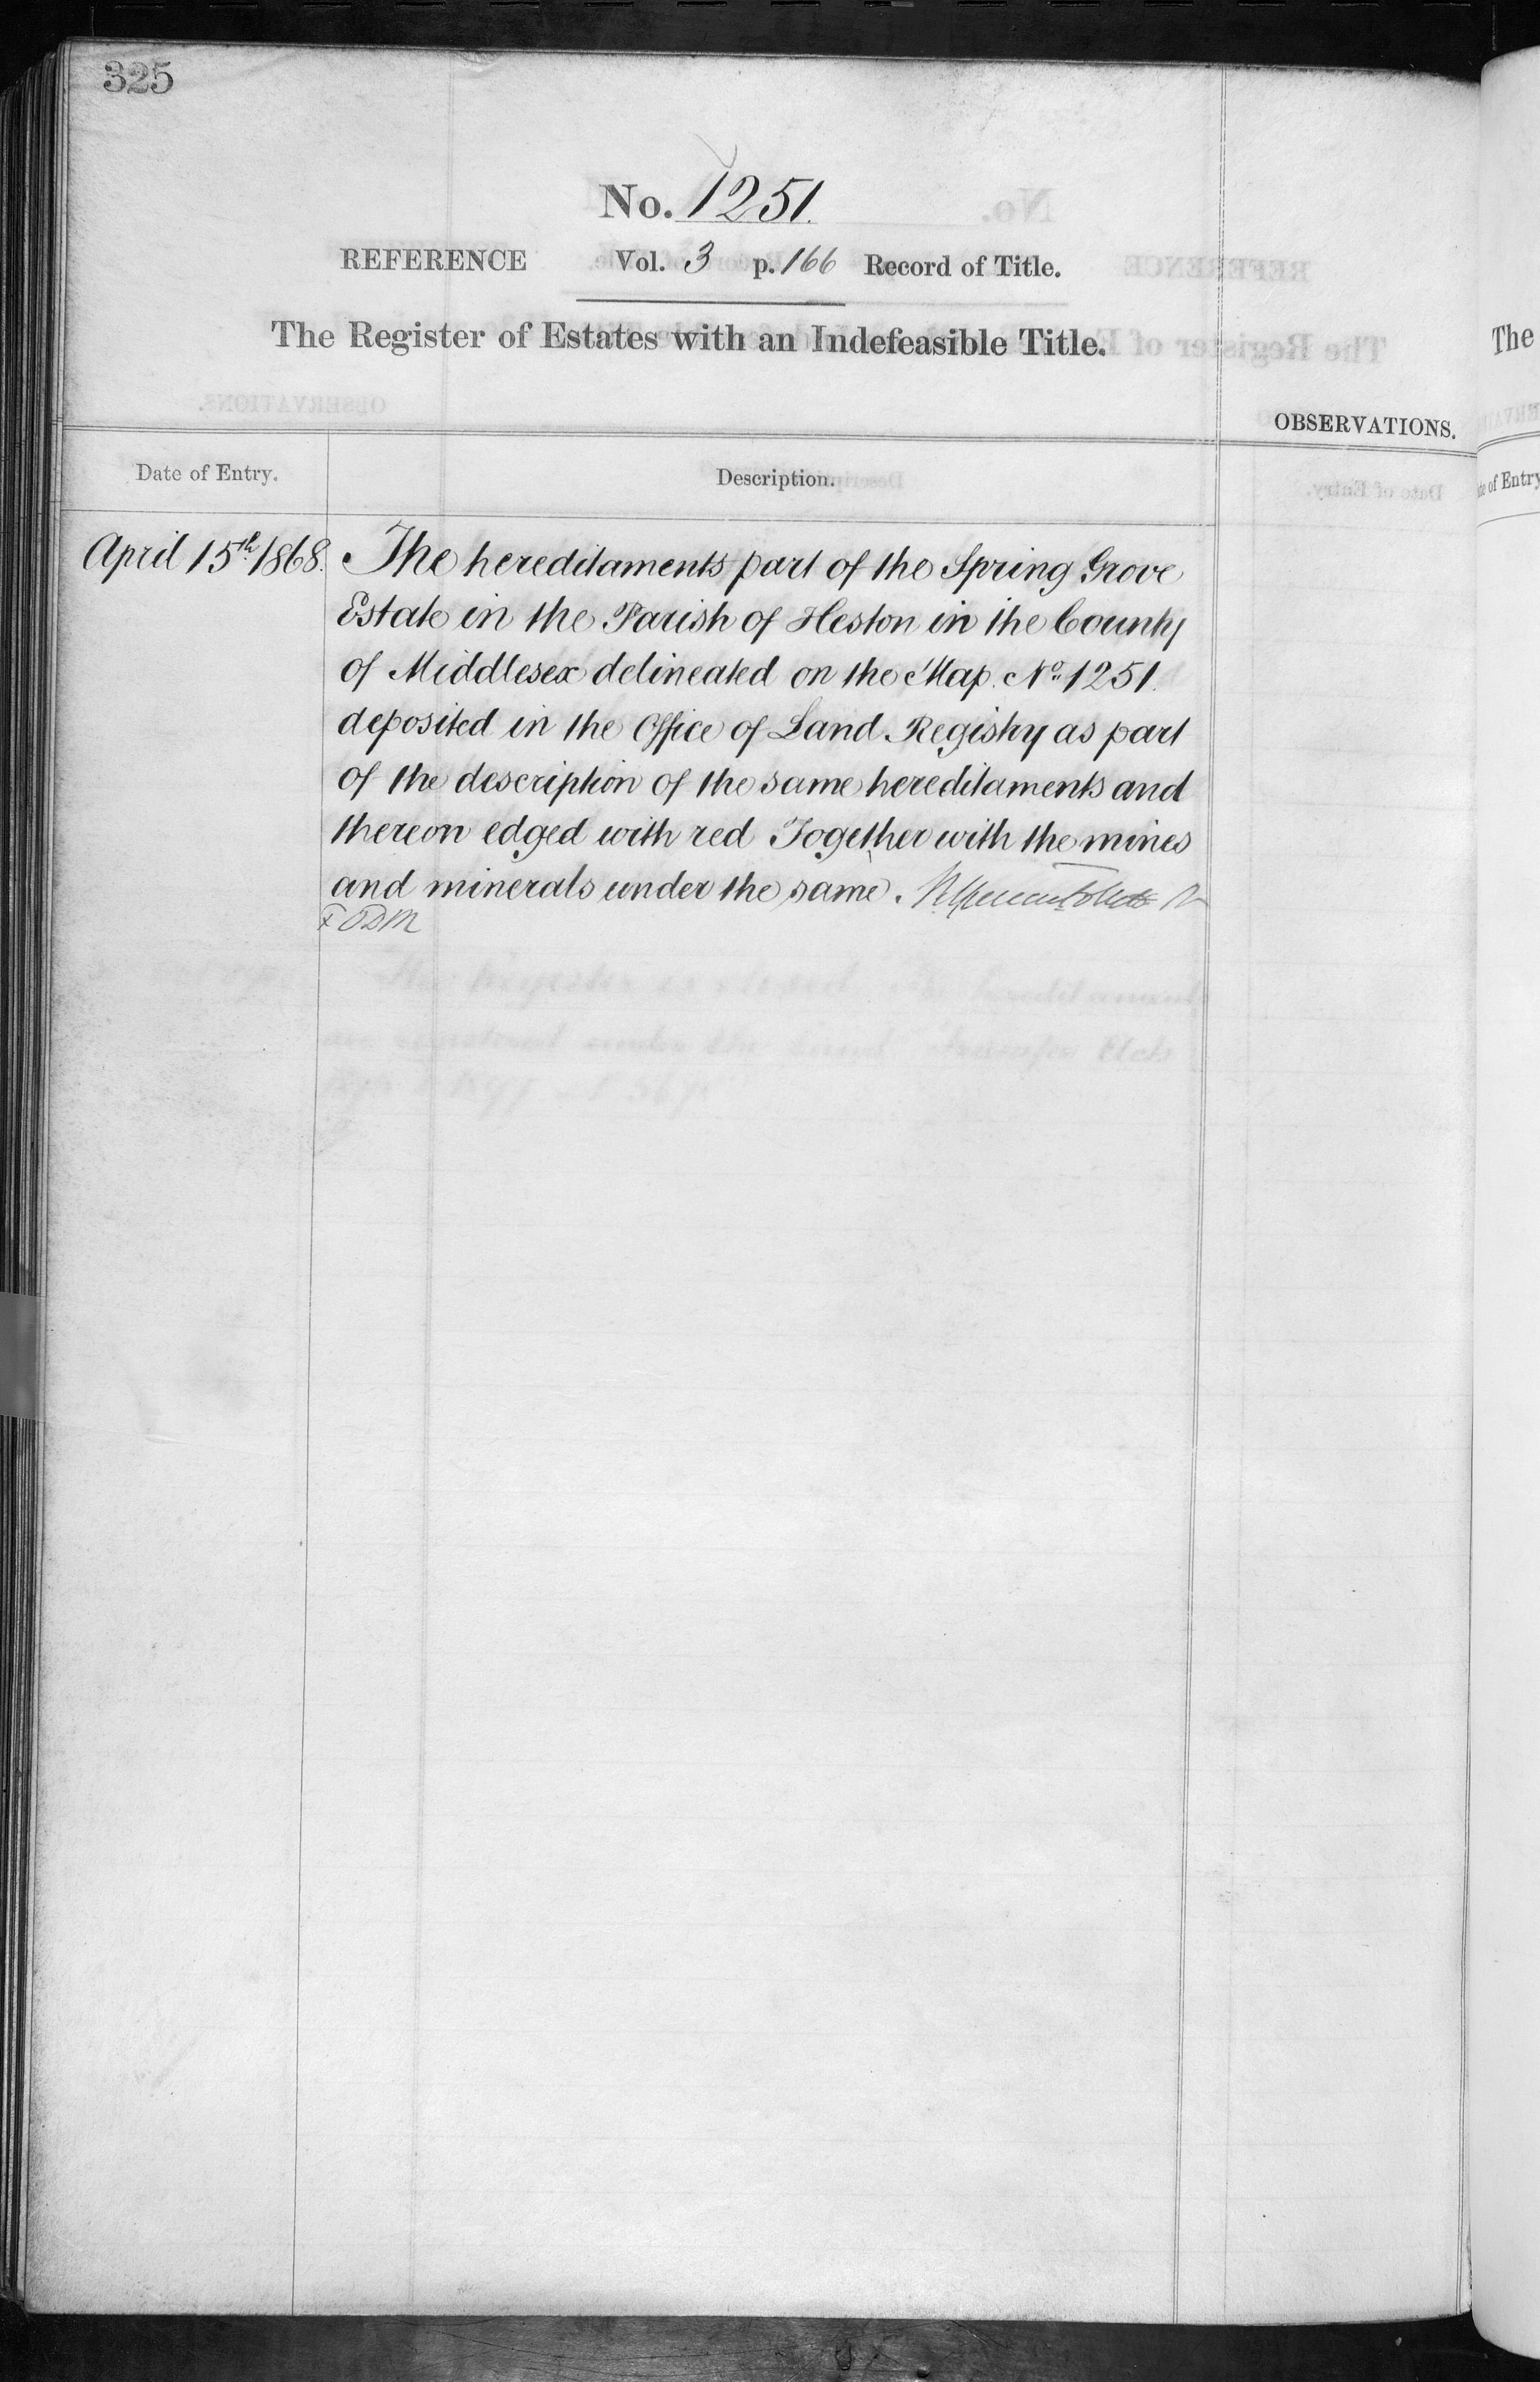 325
No. 1251.
REFERENCE Vol. 3 p. 166 Record of Title.
The Register of Estates with an Indefeasible Title.
OBSERVATIONS.
Date of Entry.
Description.
April 15th 1868. The hereditaments part of the Spring Grove
Estate in the Parish of Heston in the County
of Middlesex delineated on the Map No. 1251.
deposited in the Office of Land Registry as part
of the description of the same hereditaments and
thereon edged with red Together with the mines
and minerals under the same.
The Register is closed. The hereditaments
are registered under the Land Transfer Acts
The
of Entry